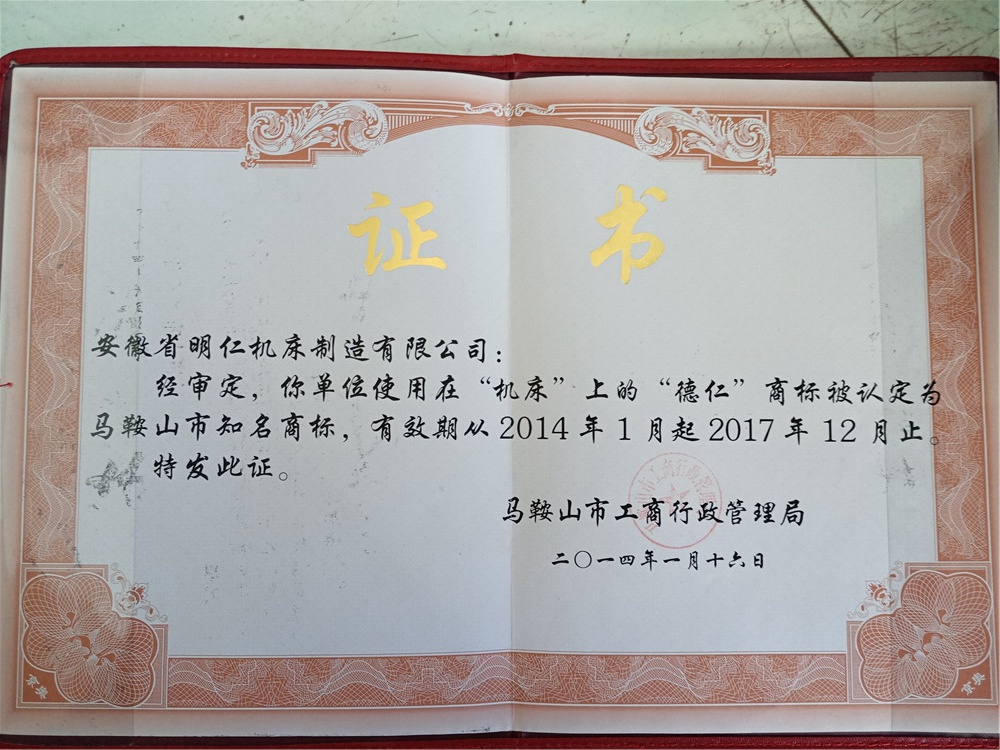 证 书
安徽省明仁机床制造有限公司：
经审定，你单位使用在“机床”上的“德仁”商标被认定为
马鞍山市知名商标，有效期从2014年1月起2017年12月止。
特发此证。
马鞍山市工商行政管理局
二〇一四年一月十六日